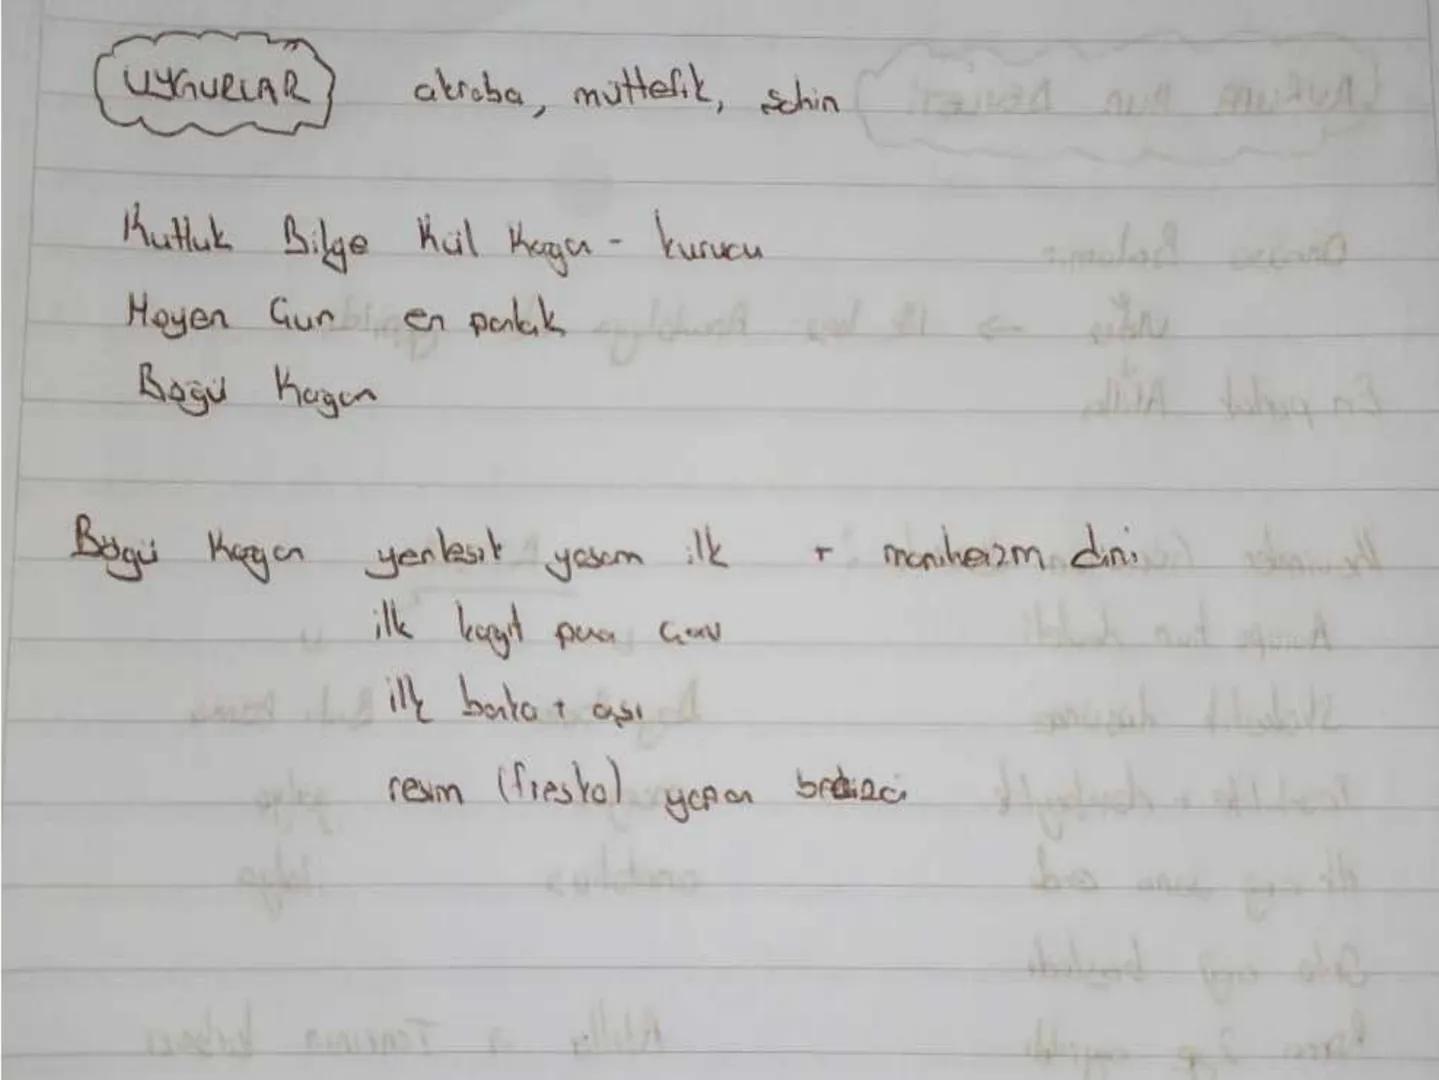 UYGURLAR akraba, müttefik, şehir
Kutluk Bilge Kül Kagan - kurucu
Moyen Çur en parlak
Bögü Kagan
Bögü Kagan yerleşik yaşam ilk + maniheizm dini
ilk kagıt para
ilk banka +
resim (fresko) yapan bedizci